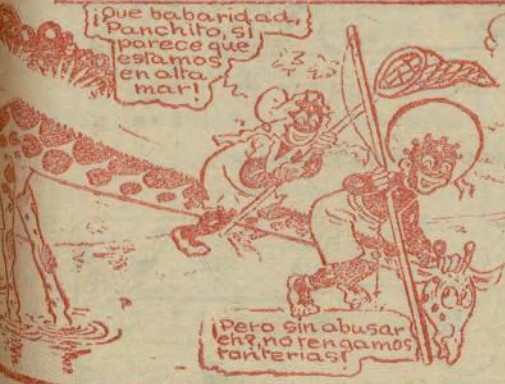 ¡Que babaridad,
Panchito, si
parece que
estamos
en alta
mar!
¡Pero sin abusar
eh?, no tengamos
tonterias!